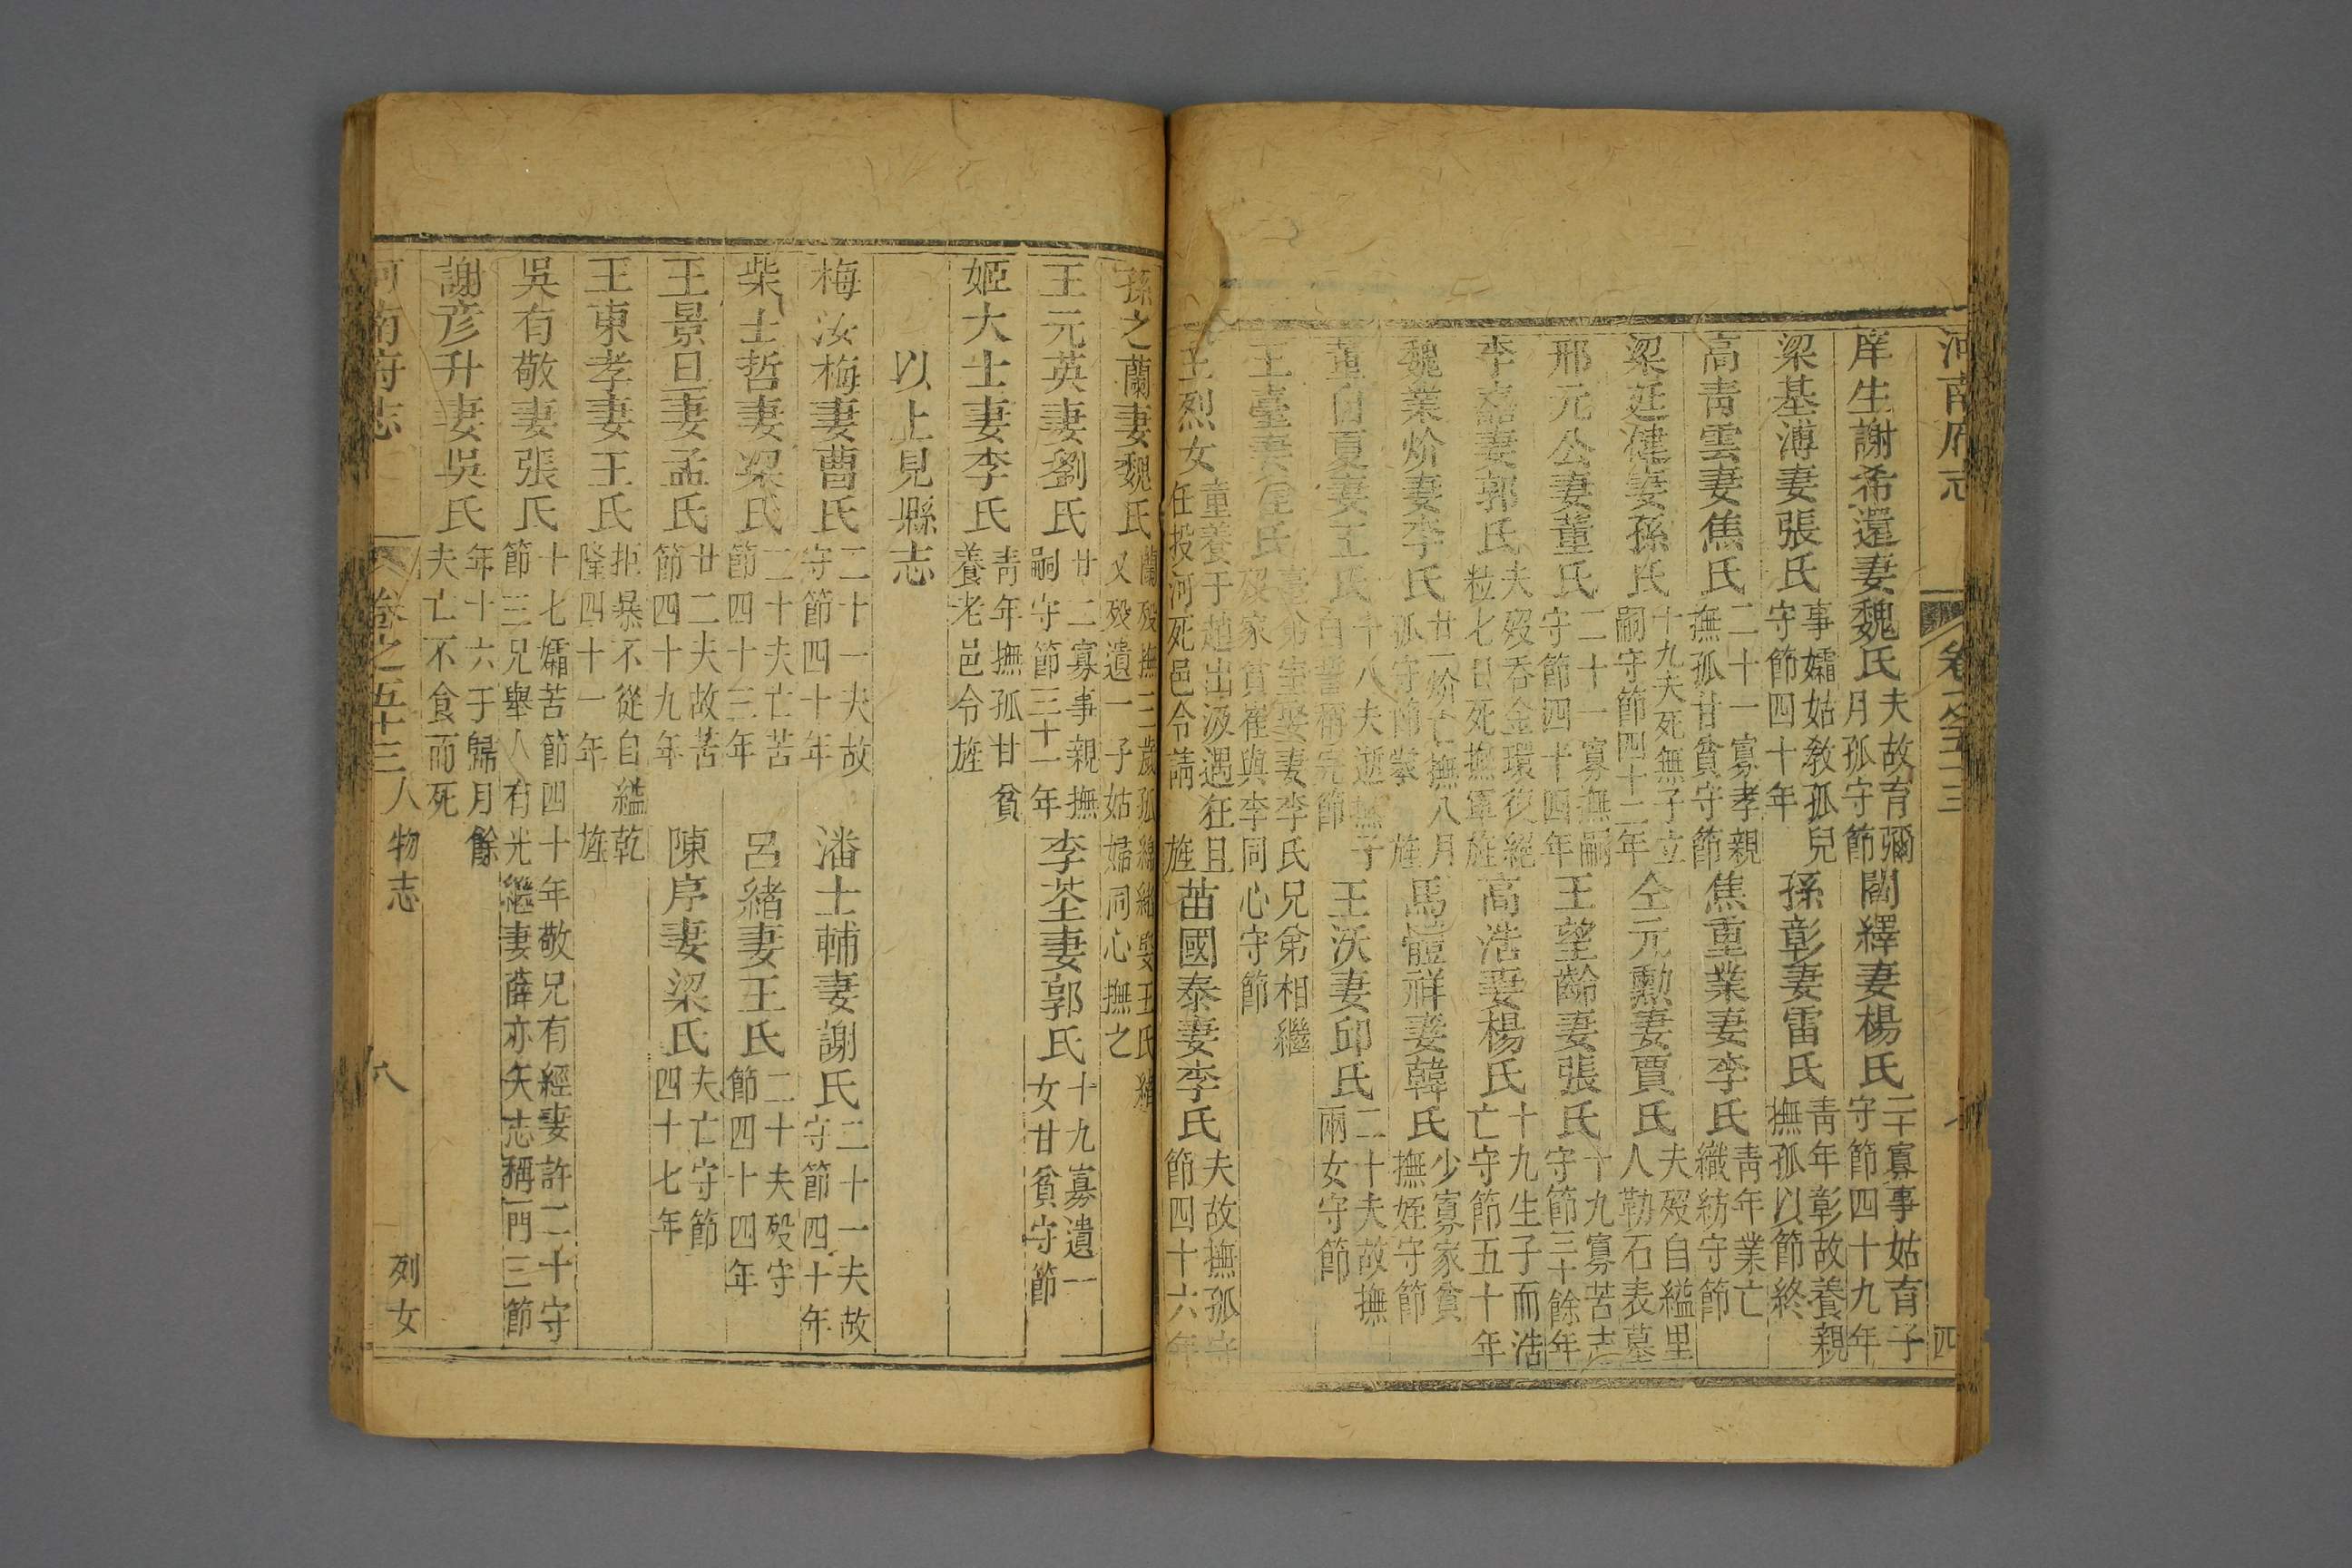 河南府志 卷之五十三 四
庠生謝希還妻魏氏 夫故育彌月孤守節 閻繹妻楊氏 二十寡事姑育子守節四十九年
梁基溥妻張氏 事孀姑教孤兒守節四十年 孫彰妻雷氏 靑年彰故養親撫孤以節終
高靑雲妻焦氏 二十一寡孝親撫孤甘貧守節 焦重業妻李氏 靑年業亡織紡守節
梁廷建妻孫氏 十九夫死無子立嗣守節四十二年 仝元勲妻賈氏 夫歿自縊里人勒石表墓
邢元公妻董氏 二十一寡撫嗣守節四十四年 王望齡妻張氏 十九寡苦志守節三十餘年
李嘉妻郭氏 夫歿吞金環復絕粒七日死撫軍旌 高浩妻楊氏 十九生子而浩亡守節五十年
魏業炌妻李氏 廿一炌亡撫八月孤守節 旌 馬體祥妻韓氏 少寡家貧撫姪守節
董自夏妻王氏 十八夫逝無子自誓稱完節 王沃妻邱氏 二十夫故撫兩女守節
王臺妻崔氏 臺弟室娶妻李氏兄弟相繼歿家貧崔與李同心守節
王烈女 童養于趙出汲遇狂且任投河死邑令請旌 苗國泰妻李氏 夫故撫孤守節四十六年
孫之蘭妻魏氏 蘭歿撫三歲孤綿緒娶王氏緒又歿遺一子姑婦同心撫之
王元英妻劉氏 廿二寡事親撫嗣守節三十一年 李荃妻郭氏 十九寡遺一女甘貧守節
姬大士妻李氏 靑年撫孤甘貧養老邑令旌
以上見縣志
梅汝梅妻曹氏 二十一夫故守節四十年 潘士輔妻謝氏 二十一夫故守節四十年
柴士哲妻梁氏 二十夫亡苦節四十三年 呂緒妻王氏 二十夫歿守節四十四年
王景旦妻孟氏 廿二夫故苦節四十九年 陳序妻梁氏 夫亡守節四十七年
王東孝妻王氏 拒暴不從自縊乾隆四十一年旌
吳有敬妻張氏 十七孀苦節四十年敬兄有經妻許二十守節三兄舉人有光繼妻薛亦矢志稱一門三節
謝彦升妻吳氏 年十六于歸月餘夫亡不食而死
河南府志 卷之五十三 人物志 列女 八